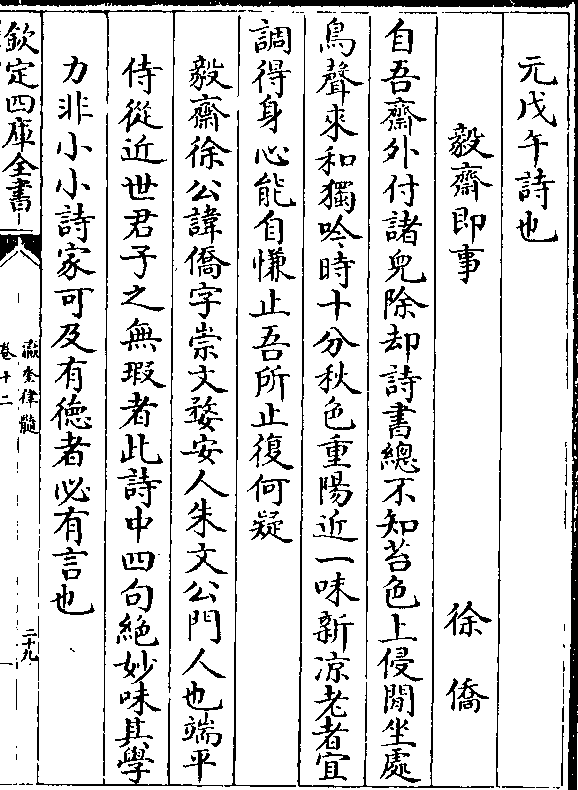 元戊午詩也
毅齋即事　徐僑
自吾齋外付諸兒除却詩書總不知苔色上侵閒坐處
鳥聲來和獨吟時十分秋色重陽近一味新凉老者宜
調得身心能自慊止吾所止復何疑
毅齋徐公諱僑字崇文婺安人朱文公門人也端平
侍從近世君子之無瑕者此詩中四句絶妙味其學
力非小小詩家可及有徳者必有言也
欽定四庫全書
瀛奎律髓
卷十二
二十九